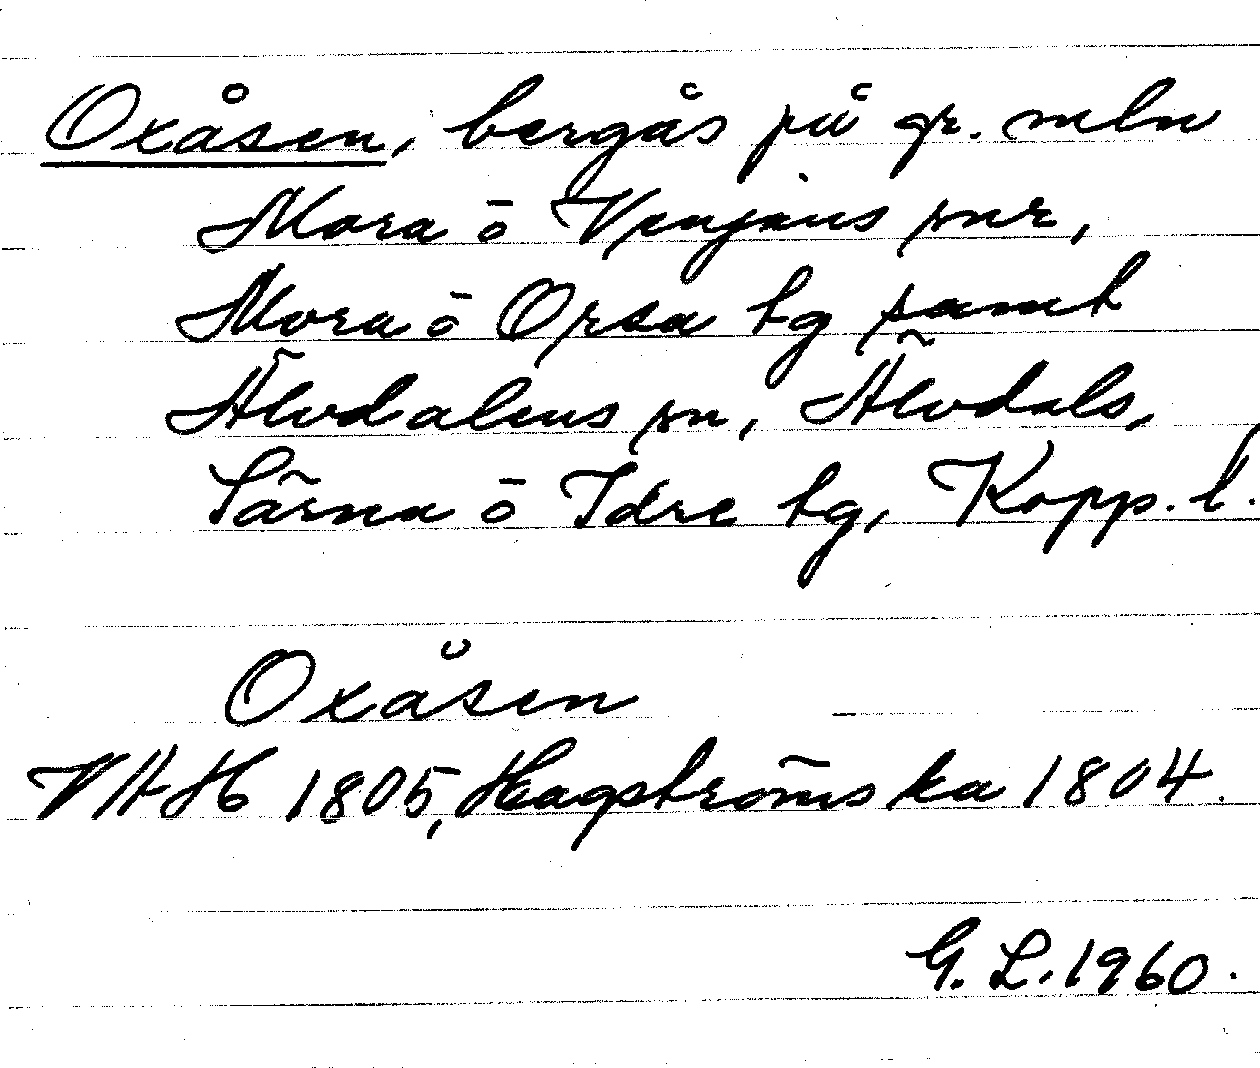 Oxåsen, bergås på gr. mln
Mora ö Venjans snr,
Mora ö Orsa tg samt
Älvdalens sn, Älvdals,
Särna ö Idre tg, Kopp. l.
Oxåsen
VAH 1805, Hagströms ka 1804.
G. L. 1960.